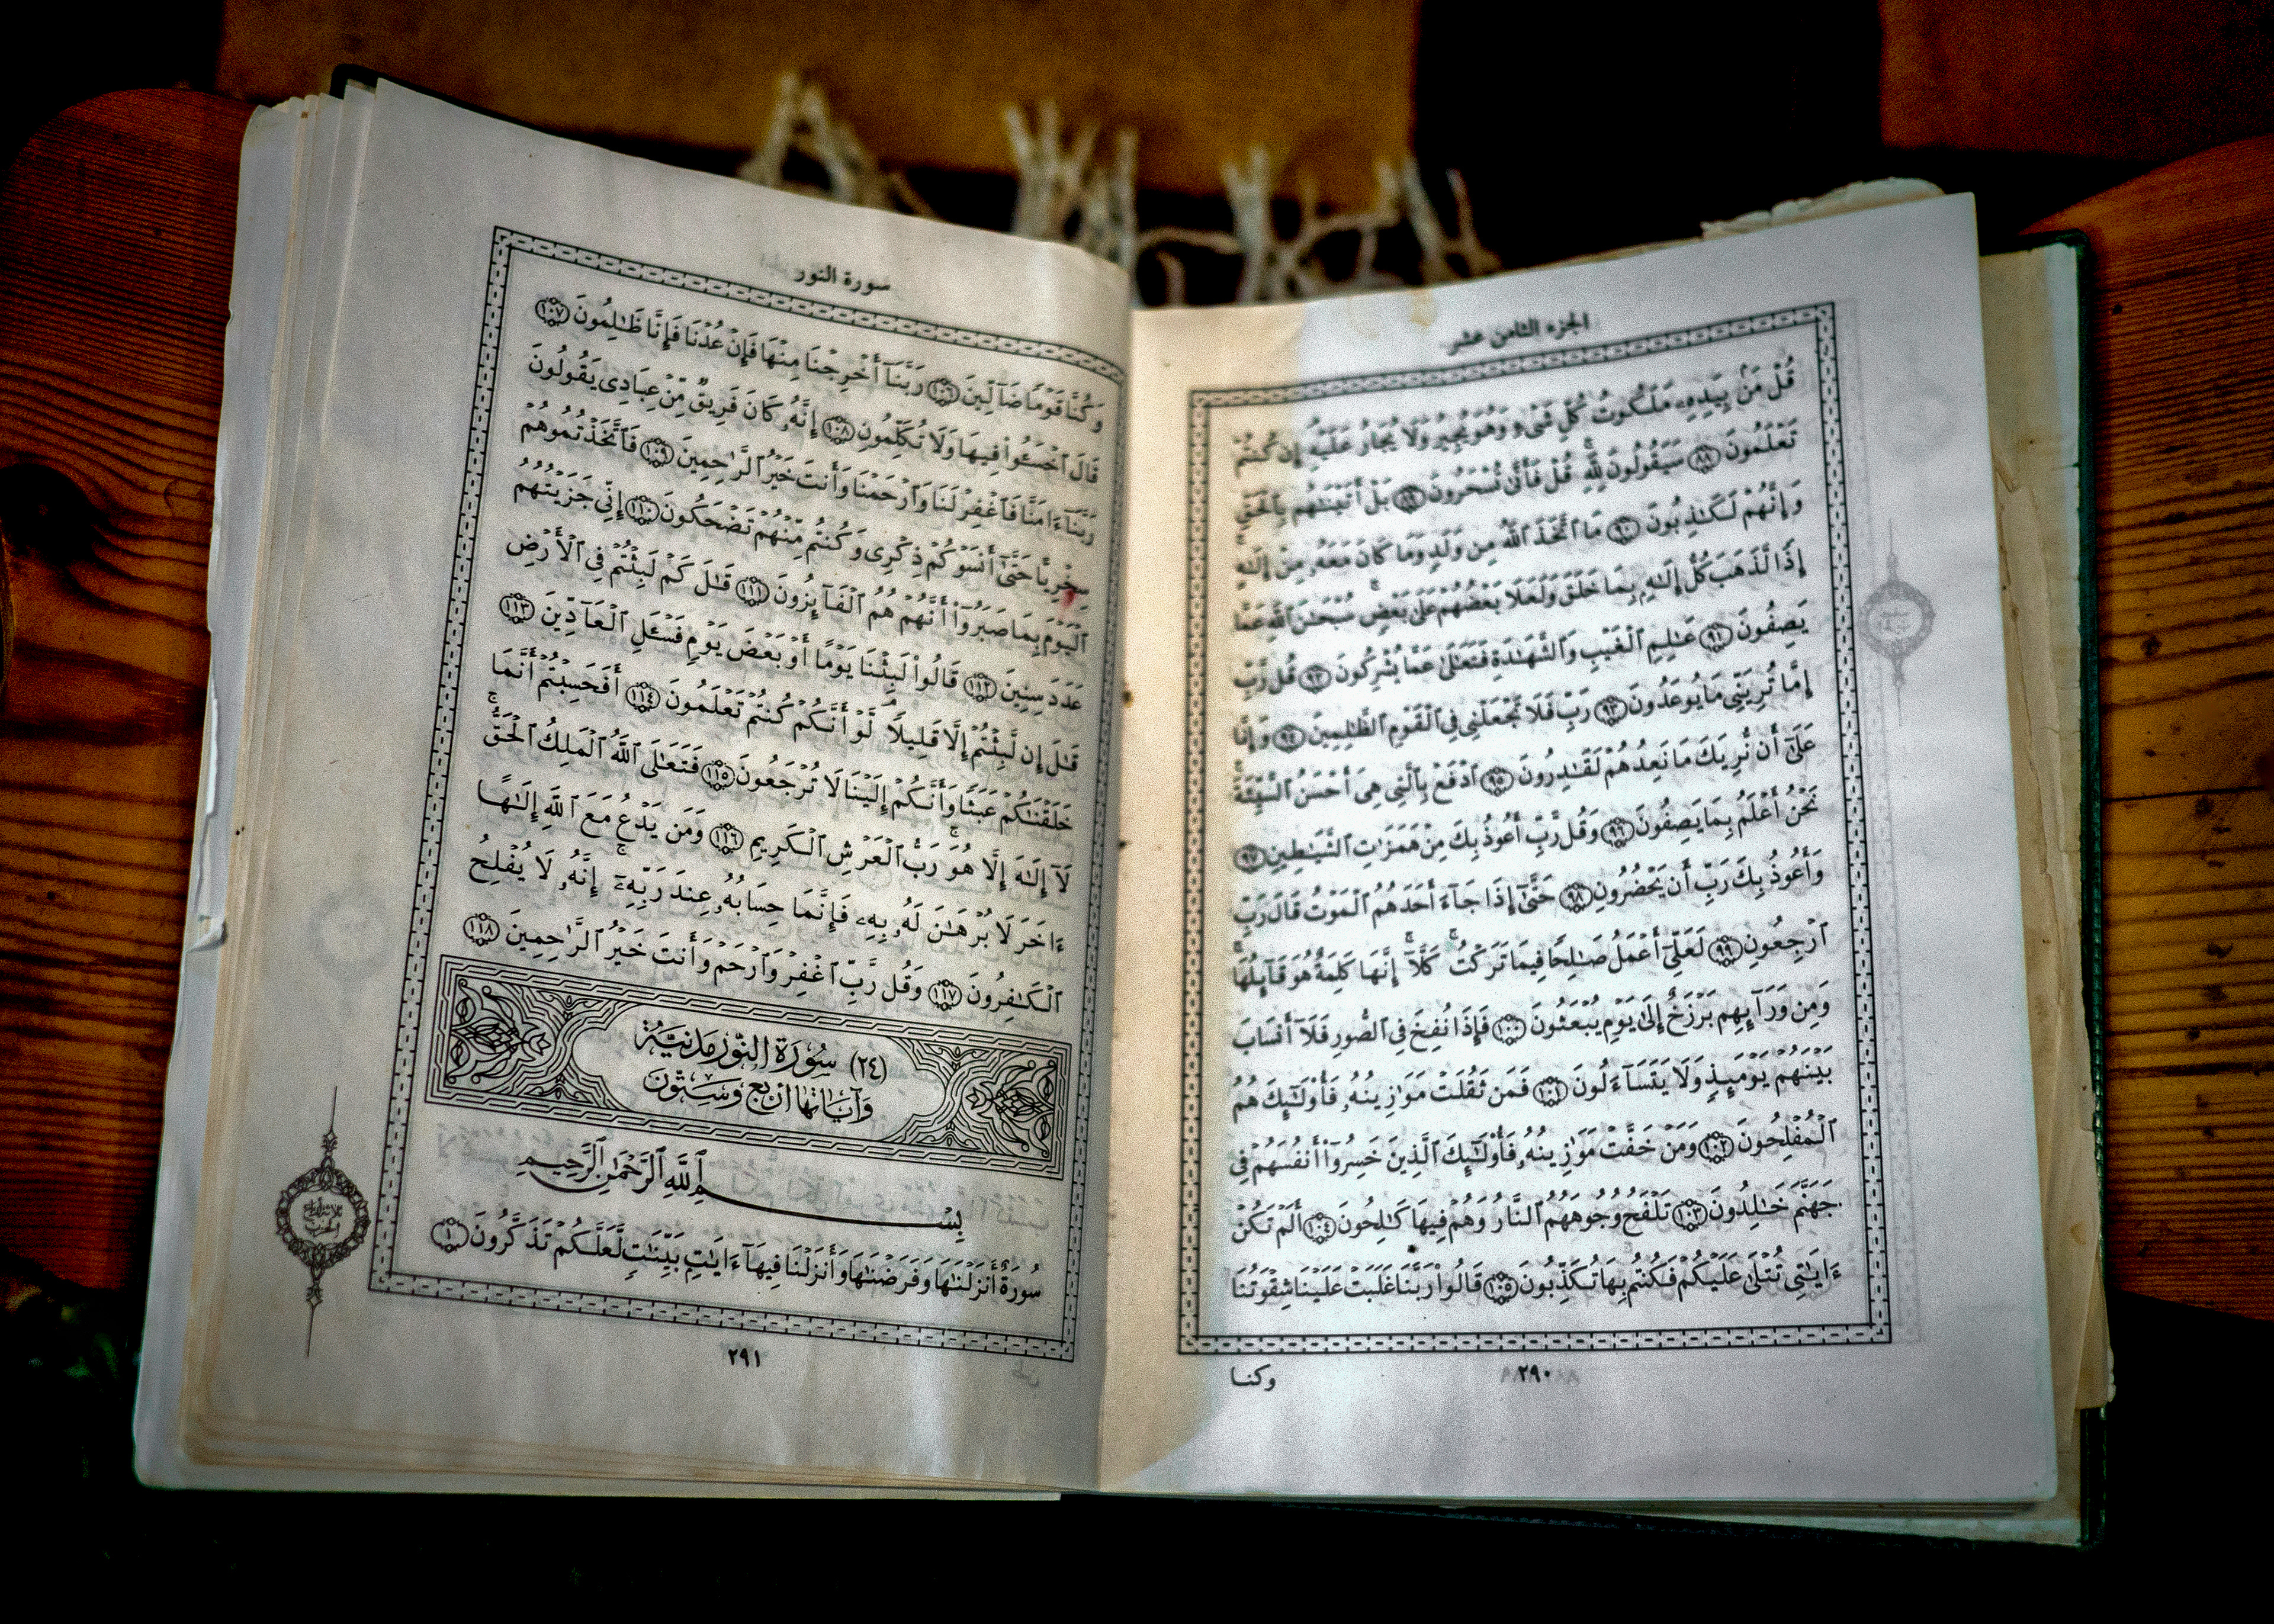 الجزء الثامن عشر
قُلْ مَنۢ بِيَدِهِۦ مَلَكُوتُ كُلِّ شَىْءٍ وَهُوَ يُجِيرُ وَلَا يُجَارُ عَلَيْهِ إِن كُنتُمْ
تَعْلَمُونَ ٨٨ سَيَقُولُونَ لِلَّهِ ۚ قُلْ فَأَنَّىٰ تُسْحَرُونَ ٨٩ بَلْ أَتَيْنَـٰهُم بِٱلْحَقِّ
وَإِنَّهُمْ لَكَـٰذِبُونَ ٩٠ مَا ٱتَّخَذَ ٱللَّهُ مِن وَلَدٍ وَمَا كَانَ مَعَهُۥ مِنْ إِلَـٰهٍ ۚ
إِذًا لَّذَهَبَ كُلُّ إِلَـٰهٍۭ بِمَا خَلَقَ وَلَعَلَا بَعْضُهُمْ عَلَىٰ بَعْضٍ ۚ سُبْحَـٰنَ ٱللَّهِ عَمَّا
يَصِفُونَ ٩١ عَـٰلِمِ ٱلْغَيْبِ وَٱلشَّهَـٰدَةِ فَتَعَـٰلَىٰ عَمَّا يُشْرِكُونَ ٩٢ قُل رَّبِّ
إِمَّا تُرِيَنِّى مَا يُوعَدُونَ ٩٣ رَبِّ فَلَا تَجْعَلْنِى فِى ٱلْقَوْمِ ٱلظَّـٰلِمِينَ ٩٤ وَإِنَّا
عَلَىٰٓ أَن نُّرِيَكَ مَا نَعِدُهُمْ لَقَـٰدِرُونَ ٩٥ ٱدْفَعْ بِٱلَّتِى هِىَ أَحْسَنُ ٱلسَّيِّئَةَ ۚ
نَحْنُ أَعْلَمُ بِمَا يَصِفُونَ ٩٦ وَقُل رَّبِّ أَعُوذُ بِكَ مِنْ هَمَزَٰتِ ٱلشَّيَـٰطِينِ ٩٧
وَأَعُوذُ بِكَ رَبِّ أَن يَحْضُرُونِ ٩٨ حَتَّىٰٓ إِذَا جَآءَ أَحَدَهُمُ ٱلْمَوْتُ قَالَ رَبِّ
ٱرْجِعُونِ ٩٩ لَعَلِّىٓ أَعْمَلُ صَـٰلِحًا فِيمَا تَرَكْتُ ۚ كَلَّآ ۚ إِنَّهَا كَلِمَةٌ هُوَ قَآئِلُهَا ۖ
وَمِن وَرَآئِهِم بَرْزَخٌ إِلَىٰ يَوْمِ يُبْعَثُونَ ١٠٠ فَإِذَا نُفِخَ فِى ٱلصُّورِ فَلَآ أَنسَابَ
بَيْنَهُمْ يَوْمَئِذٍ وَلَا يَتَسَآءَلُونَ ١٠١ فَمَن ثَقُلَتْ مَوَٰزِينُهُۥ فَأُو۟لَـٰٓئِكَ هُمُ
ٱلْمُفْلِحُونَ ١٠٢ وَمَنْ خَفَّتْ مَوَٰزِينُهُۥ فَأُو۟لَـٰٓئِكَ ٱلَّذِينَ خَسِرُوٓا۟ أَنفُسَهُمْ فِى
جَهَنَّمَ خَـٰلِدُونَ ١٠٣ تَلْفَحُ وُجُوهَهُمُ ٱلنَّارُ وَهُمْ فِيهَا كَـٰلِحُونَ ١٠٤ أَلَمْ تَكُنْ
ءَايَـٰتِى تُتْلَىٰ عَلَيْكُمْ فَكُنتُم بِهَا تُكَذِّبُونَ ١٠٥ قَالُوا۟ رَبَّنَا غَلَبَتْ عَلَيْنَا شِقْوَتُنَا
٢٩٠
وكنا
سورة النور
وَكُنَّا قَوْمًا ضَآلِّينَ ١٠٦ رَبَّنَآ أَخْرِجْنَا مِنْهَا فَإِنْ عُدْنَا فَإِنَّا ظَـٰلِمُونَ ١٠٧
قَالَ ٱخْسَـُٔوا۟ فِيهَا وَلَا تُكَلِّمُونِ ١٠٨ إِنَّهُۥ كَانَ فَرِيقٌ مِّنْ عِبَادِى يَقُولُونَ
رَبَّنَآ ءَامَنَّا فَٱغْفِرْ لَنَا وَٱرْحَمْنَا وَأَنتَ خَيْرُ ٱلرَّٰحِمِينَ ١٠٩ فَٱتَّخَذْتُمُوهُمْ
سِخْرِيًّا حَتَّىٰٓ أَنسَوْكُمْ ذِكْرِى وَكُنتُم مِّنْهُمْ تَضْحَكُونَ ١١٠ إِنِّى جَزَيْتُهُمُ
ٱلْيَوْمَ بِمَا صَبَرُوٓا۟ أَنَّهُمْ هُمُ ٱلْفَآئِزُونَ ١١١ قَـٰلَ كَمْ لَبِثْتُمْ فِى ٱلْأَرْضِ
عَدَدَ سِنِينَ ١١٢ قَالُوا۟ لَبِثْنَا يَوْمًا أَوْ بَعْضَ يَوْمٍ فَسْـَٔلِ ٱلْعَآدِّينَ ١١٣
قَـٰلَ إِن لَّبِثْتُمْ إِلَّا قَلِيلًا ۖ لَّوْ أَنَّكُمْ كُنتُمْ تَعْلَمُونَ ١١٤ أَفَحَسِبْتُمْ أَنَّمَا
خَلَقْنَـٰكُمْ عَبَثًا وَأَنَّكُمْ إِلَيْنَا لَا تُرْجَعُونَ ١١٥ فَتَعَـٰلَى ٱللَّهُ ٱلْمَلِكُ ٱلْحَقُّ ۖ
لَآ إِلَـٰهَ إِلَّا هُوَ رَبُّ ٱلْعَرْشِ ٱلْكَرِيمِ ١١٦ وَمَن يَدْعُ مَعَ ٱللَّهِ إِلَـٰهًا
ءَاخَرَ لَا بُرْهَـٰنَ لَهُۥ بِهِۦ فَإِنَّمَا حِسَابُهُۥ عِندَ رَبِّهِۦٓ ۚ إِنَّهُۥ لَا يُفْلِحُ
ٱلْكَـٰفِرُونَ ١١٧ وَقُل رَّبِّ ٱغْفِرْ وَٱرْحَمْ وَأَنتَ خَيْرُ ٱلرَّٰحِمِينَ ١١٨
(٢٤) سُورَةُ النُّورِ مَدَنِيَّةٌ
وَآيَاتُهَا أَرْبَعٌ وَسِتُّونَ
بِسْمِ ٱللَّهِ ٱلرَّحْمَـٰنِ ٱلرَّحِيمِ
سُورَةٌ أَنزَلْنَـٰهَا وَفَرَضْنَـٰهَا وَأَنزَلْنَا فِيهَآ ءَايَـٰتٍۭ بَيِّنَـٰتٍ لَّعَلَّكُمْ تَذَكَّرُونَ ١
٢٩١